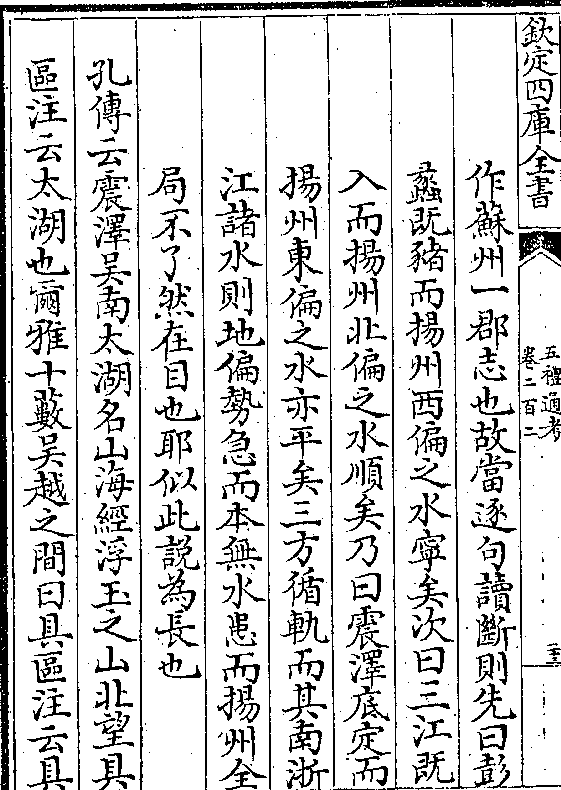 欽定四庫全書
五禮通考
卷二百二
作蘇州一郡志也故當逐句讀斷則先曰彭
蠡既豬而揚州西偏之水寧矣次曰三江既
入而揚州北偏之水順矣乃曰震澤底定而
揚州東偏之水亦平矣三方循軌而其南浙
江諸水則地偏勢急而本無水患而揚州全
局不了然在目也耶似此説為長也
孔傳云震澤吳南太湖名山海經浮玉之山北望具
區注云太湖也爾雅十藪吳越之間曰具區注云具